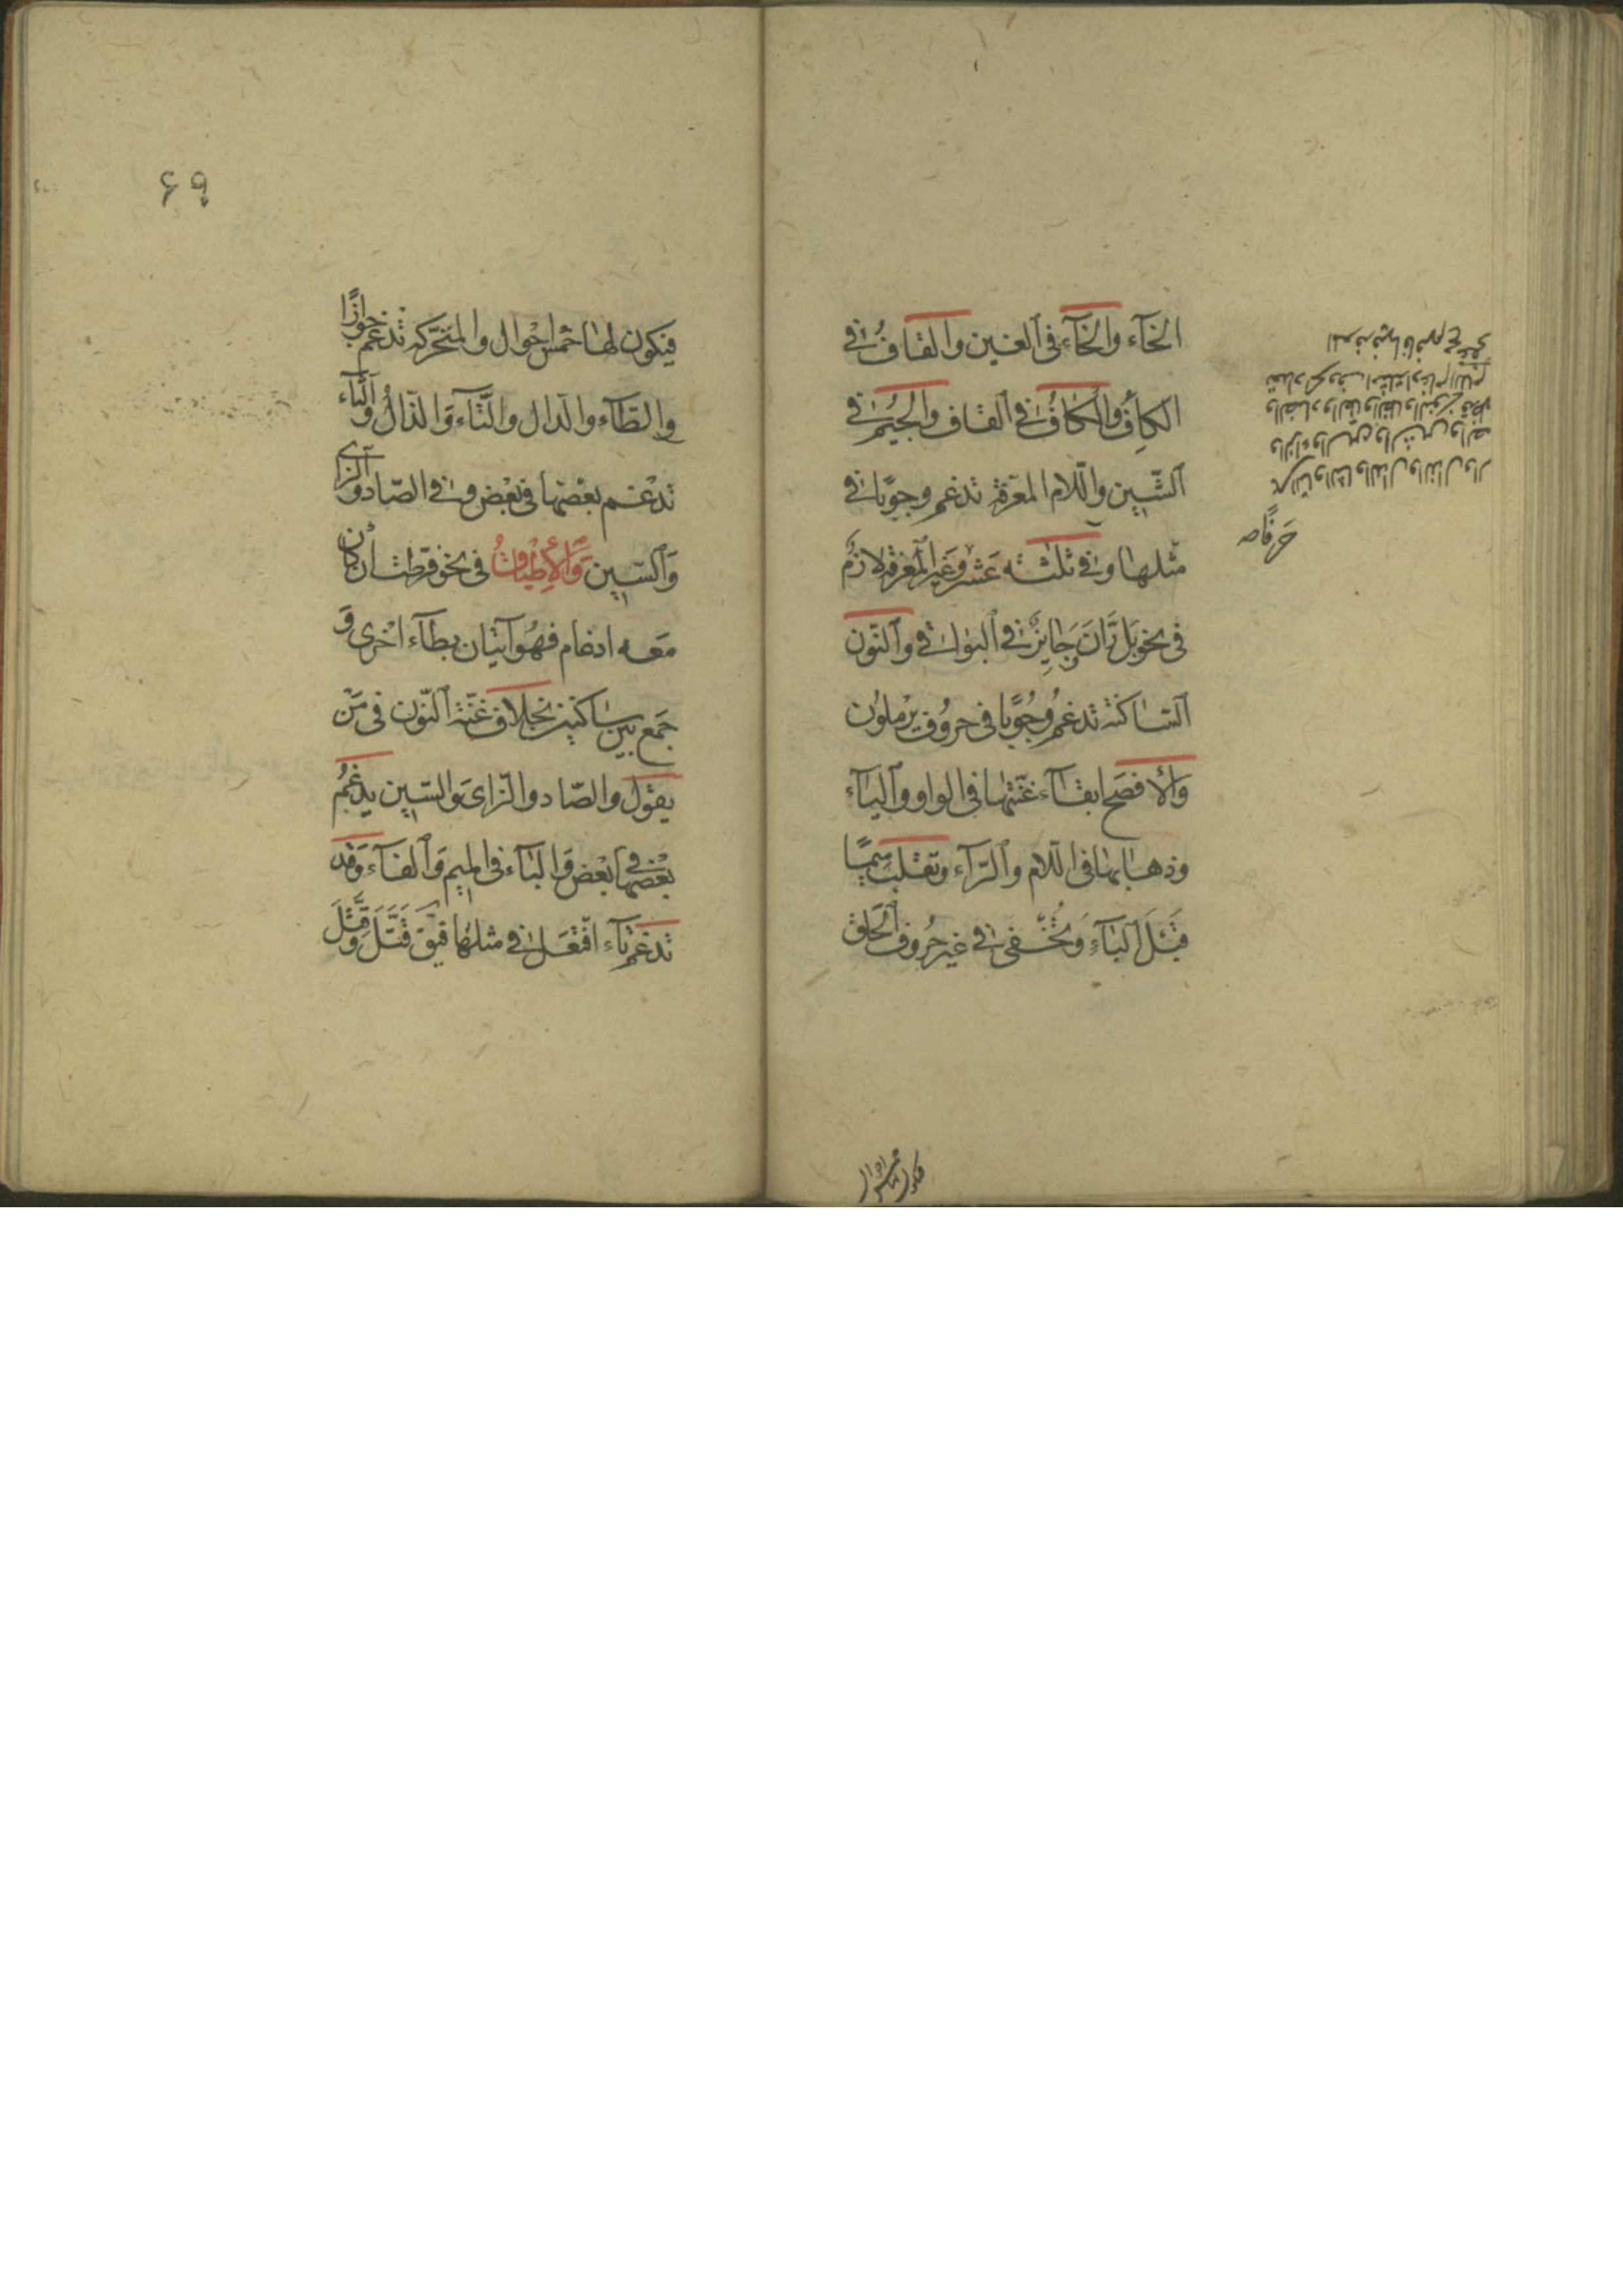 الخآء والخآء فى الغين والقاف فى
الكاف والكاف فى القاف والجيم فى
الشين واللام المعرفة تدغم وجوبا فى
مثلها وفى ثلثه عشر وغير المعرفة لازم
فى نحو بل ران وجايز فى البواقى والنون
الساكنة تدغم وجوبا فى حروف يرملون
والافصح ابقآء غنتها فى الواو واليآء
وذهابها فى اللام والرآء وتقلب ميما
قبل البآء وتخفى فى غير حروف الحلق
فيكون لها خمس احوال
۶۹
فيكون لها خمس احوال والمتحركة تدغم جوازا
والطآء والدال والتآء والذال والثآء
تدغم بعضها فى بعض وفى الصاد والزاى
والسين والاطباق فى نحو فرطت ان كان
معه ادغام فهو اتيان بطآء اخرى و
جمع بين ساكنين بخلاف غنة النون فى من
يقول والصاد والزاى والسين يدغم
بعضها فى بعض والبآء فى الميم والفآء وقد
تدغم تآء افتعل فى مثلها فيق قتل وقتل